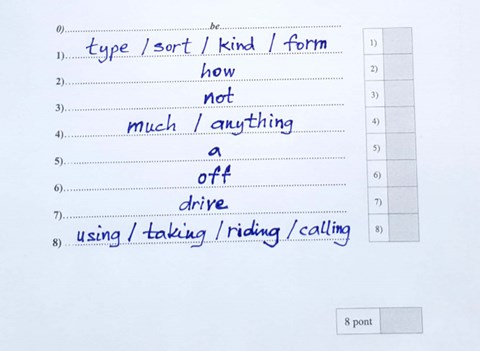 0) be
1) type / sort / kind / form 1)
2) how 2)
3) not 3)
4) much / anything 4)
5) a 5)
6) off 6)
7) drive 7)
8) using / taking / riding / calling 8)
8 pont